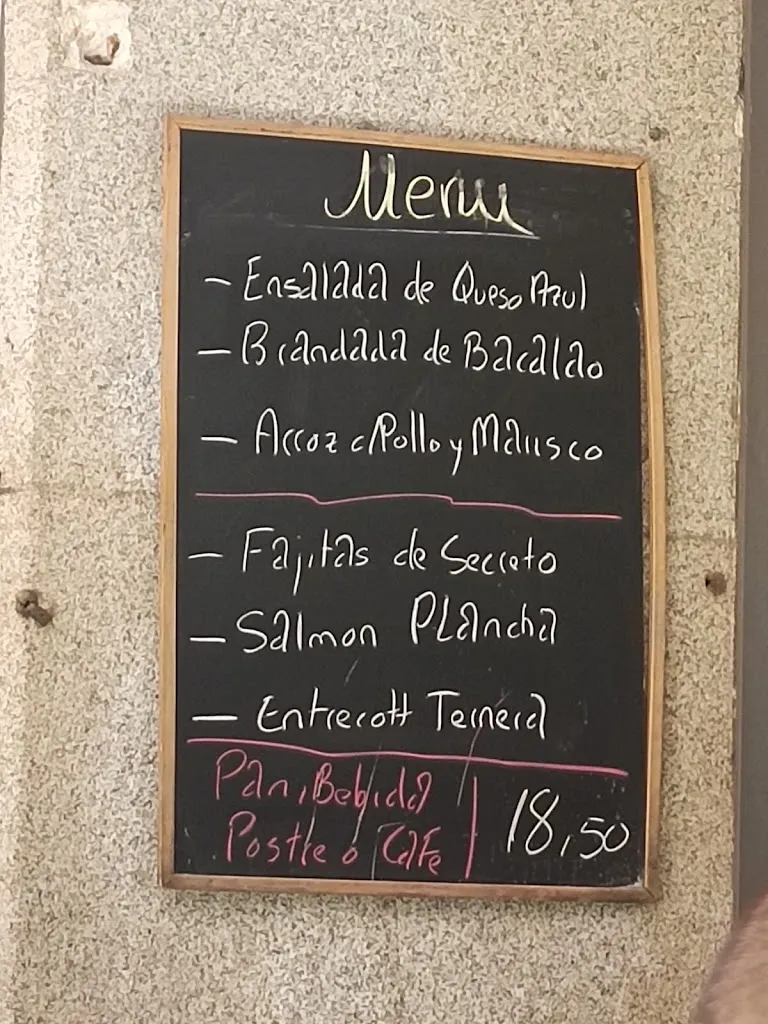 Menu
- Ensalada de Queso Azul
- Brandada de Bacalao
- Arroz c/Pollo y Marisco
- Fajitas de Secreto
- Salmon Plancha
- Entrecott Ternera
Pan, Bebida
Postre o Café
18,50